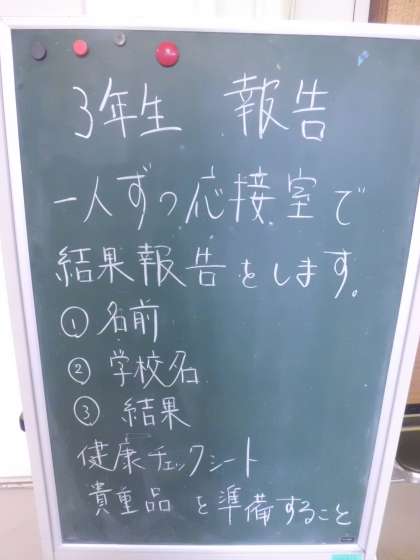 3年生 報告
一人ずつ応接室で
結果報告をします。
① 名前
② 学校名
③ 結果
健康チェックシート
貴重品を準備すること